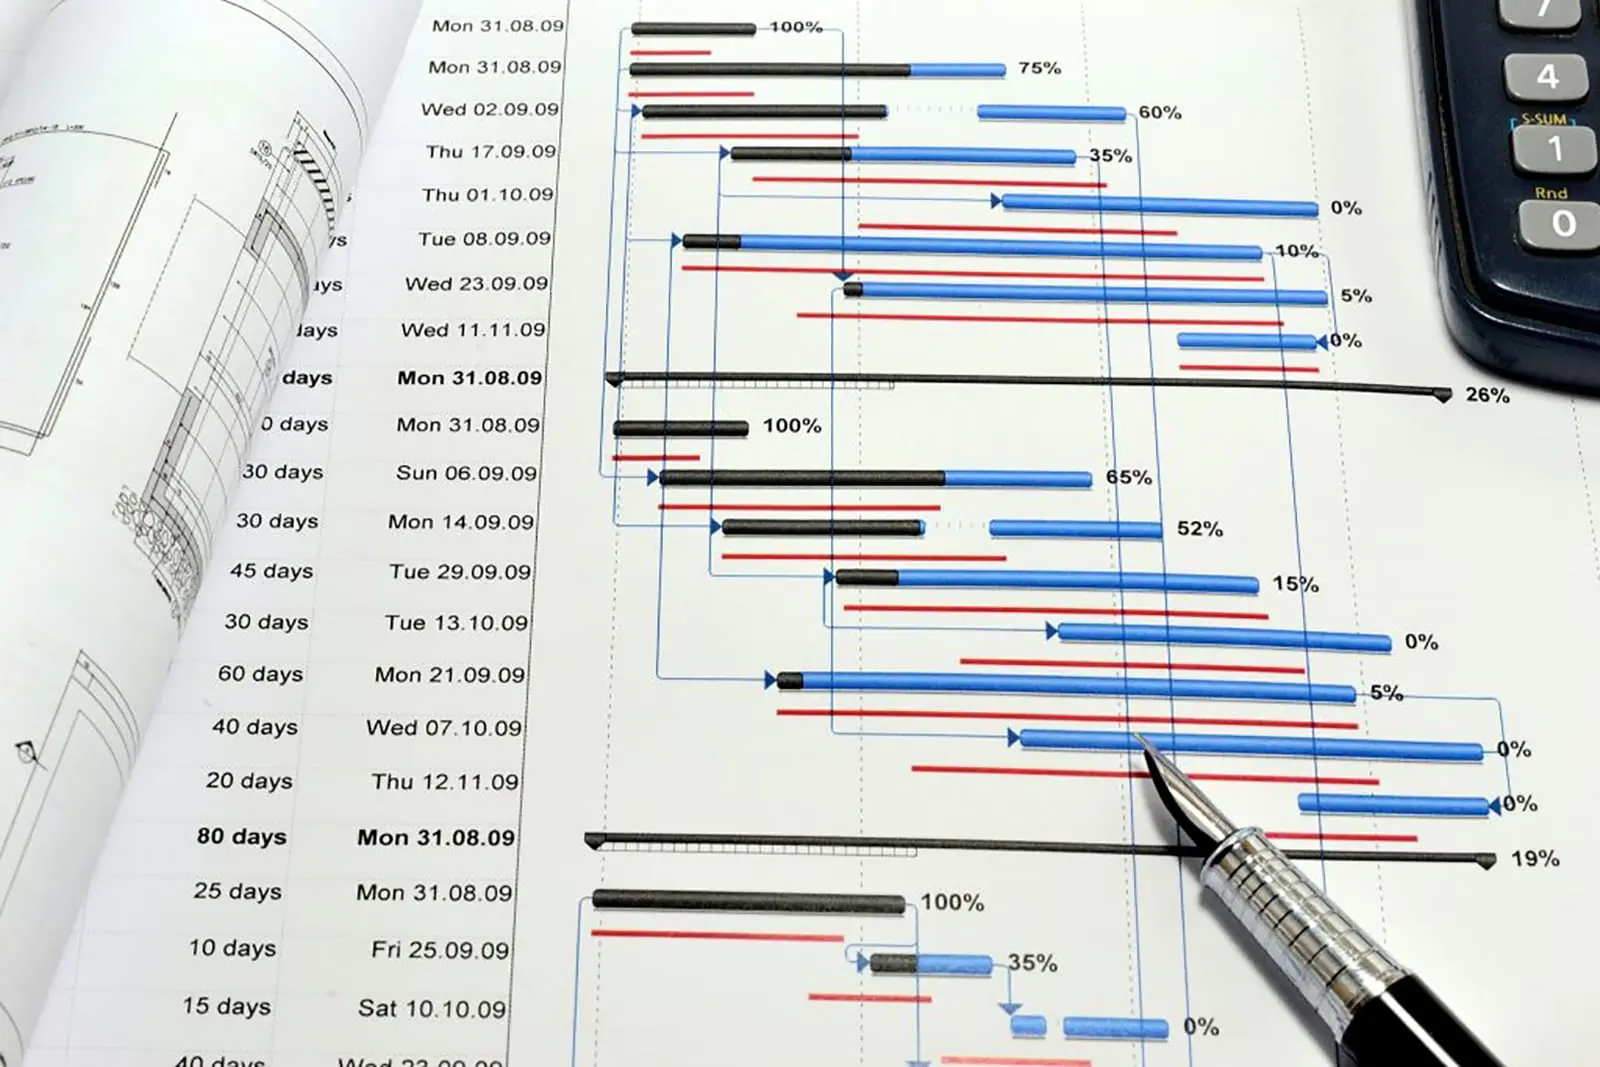 Mon 31.08.09 100%
Mon 31.08.09 75%
Wed 02.09.09 60%
Thu 17.09.09 35%
Thu 01.10.09 0%
Tue 08.09.09 10%
Wed 23.09.09 5%
Wed 11.11.09 0%
days Mon 31.08.09 26%
0 days Mon 31.08.09 100%
30 days Sun 06.09.09 65%
30 days Mon 14.09.09 52%
45 days Tue 29.09.09 15%
30 days Tue 13.10.09 0%
60 days Mon 21.09.09 5%
40 days Wed 07.10.09 0%
20 days Thu 12.11.09 0%
80 days Mon 31.08.09 19%
25 days Mon 31.08.09 100%
10 days Fri 25.09.09 35%
15 days Sat 10.10.09 0%
40 days Wed 23.09.09
7
4
S-SUM
1
Rnd
0